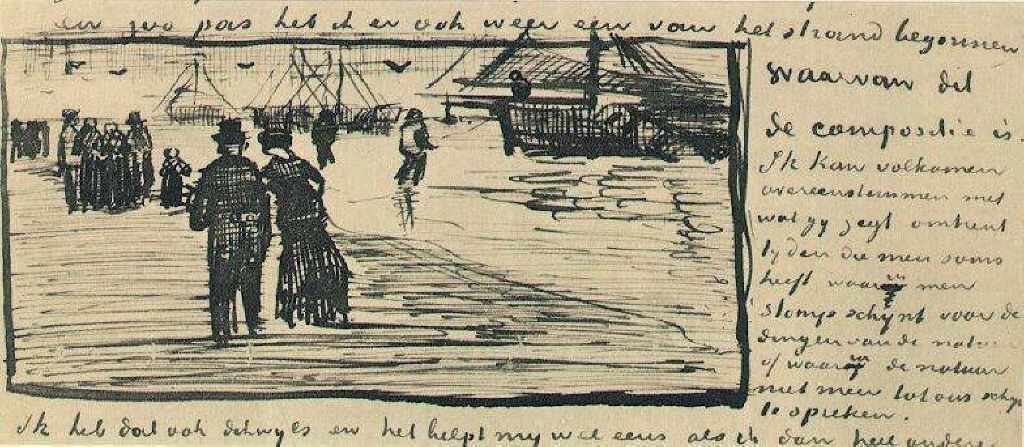 en zoo pas heb ik er ook weer een van het strand begonnen
waarvan dit
de compositie is.
Ik kan volkomen
overeenstemmen met
wat gy zegt omtrent
tyden die men soms
heeft waarin men
stomp schynt voor de
dingen van de natuur
of waarin de natuur
niet meer tot ons schynt
te spreken.
Ik heb dat ook dikwyls en het helpt my wel eens als ik dan heel andere